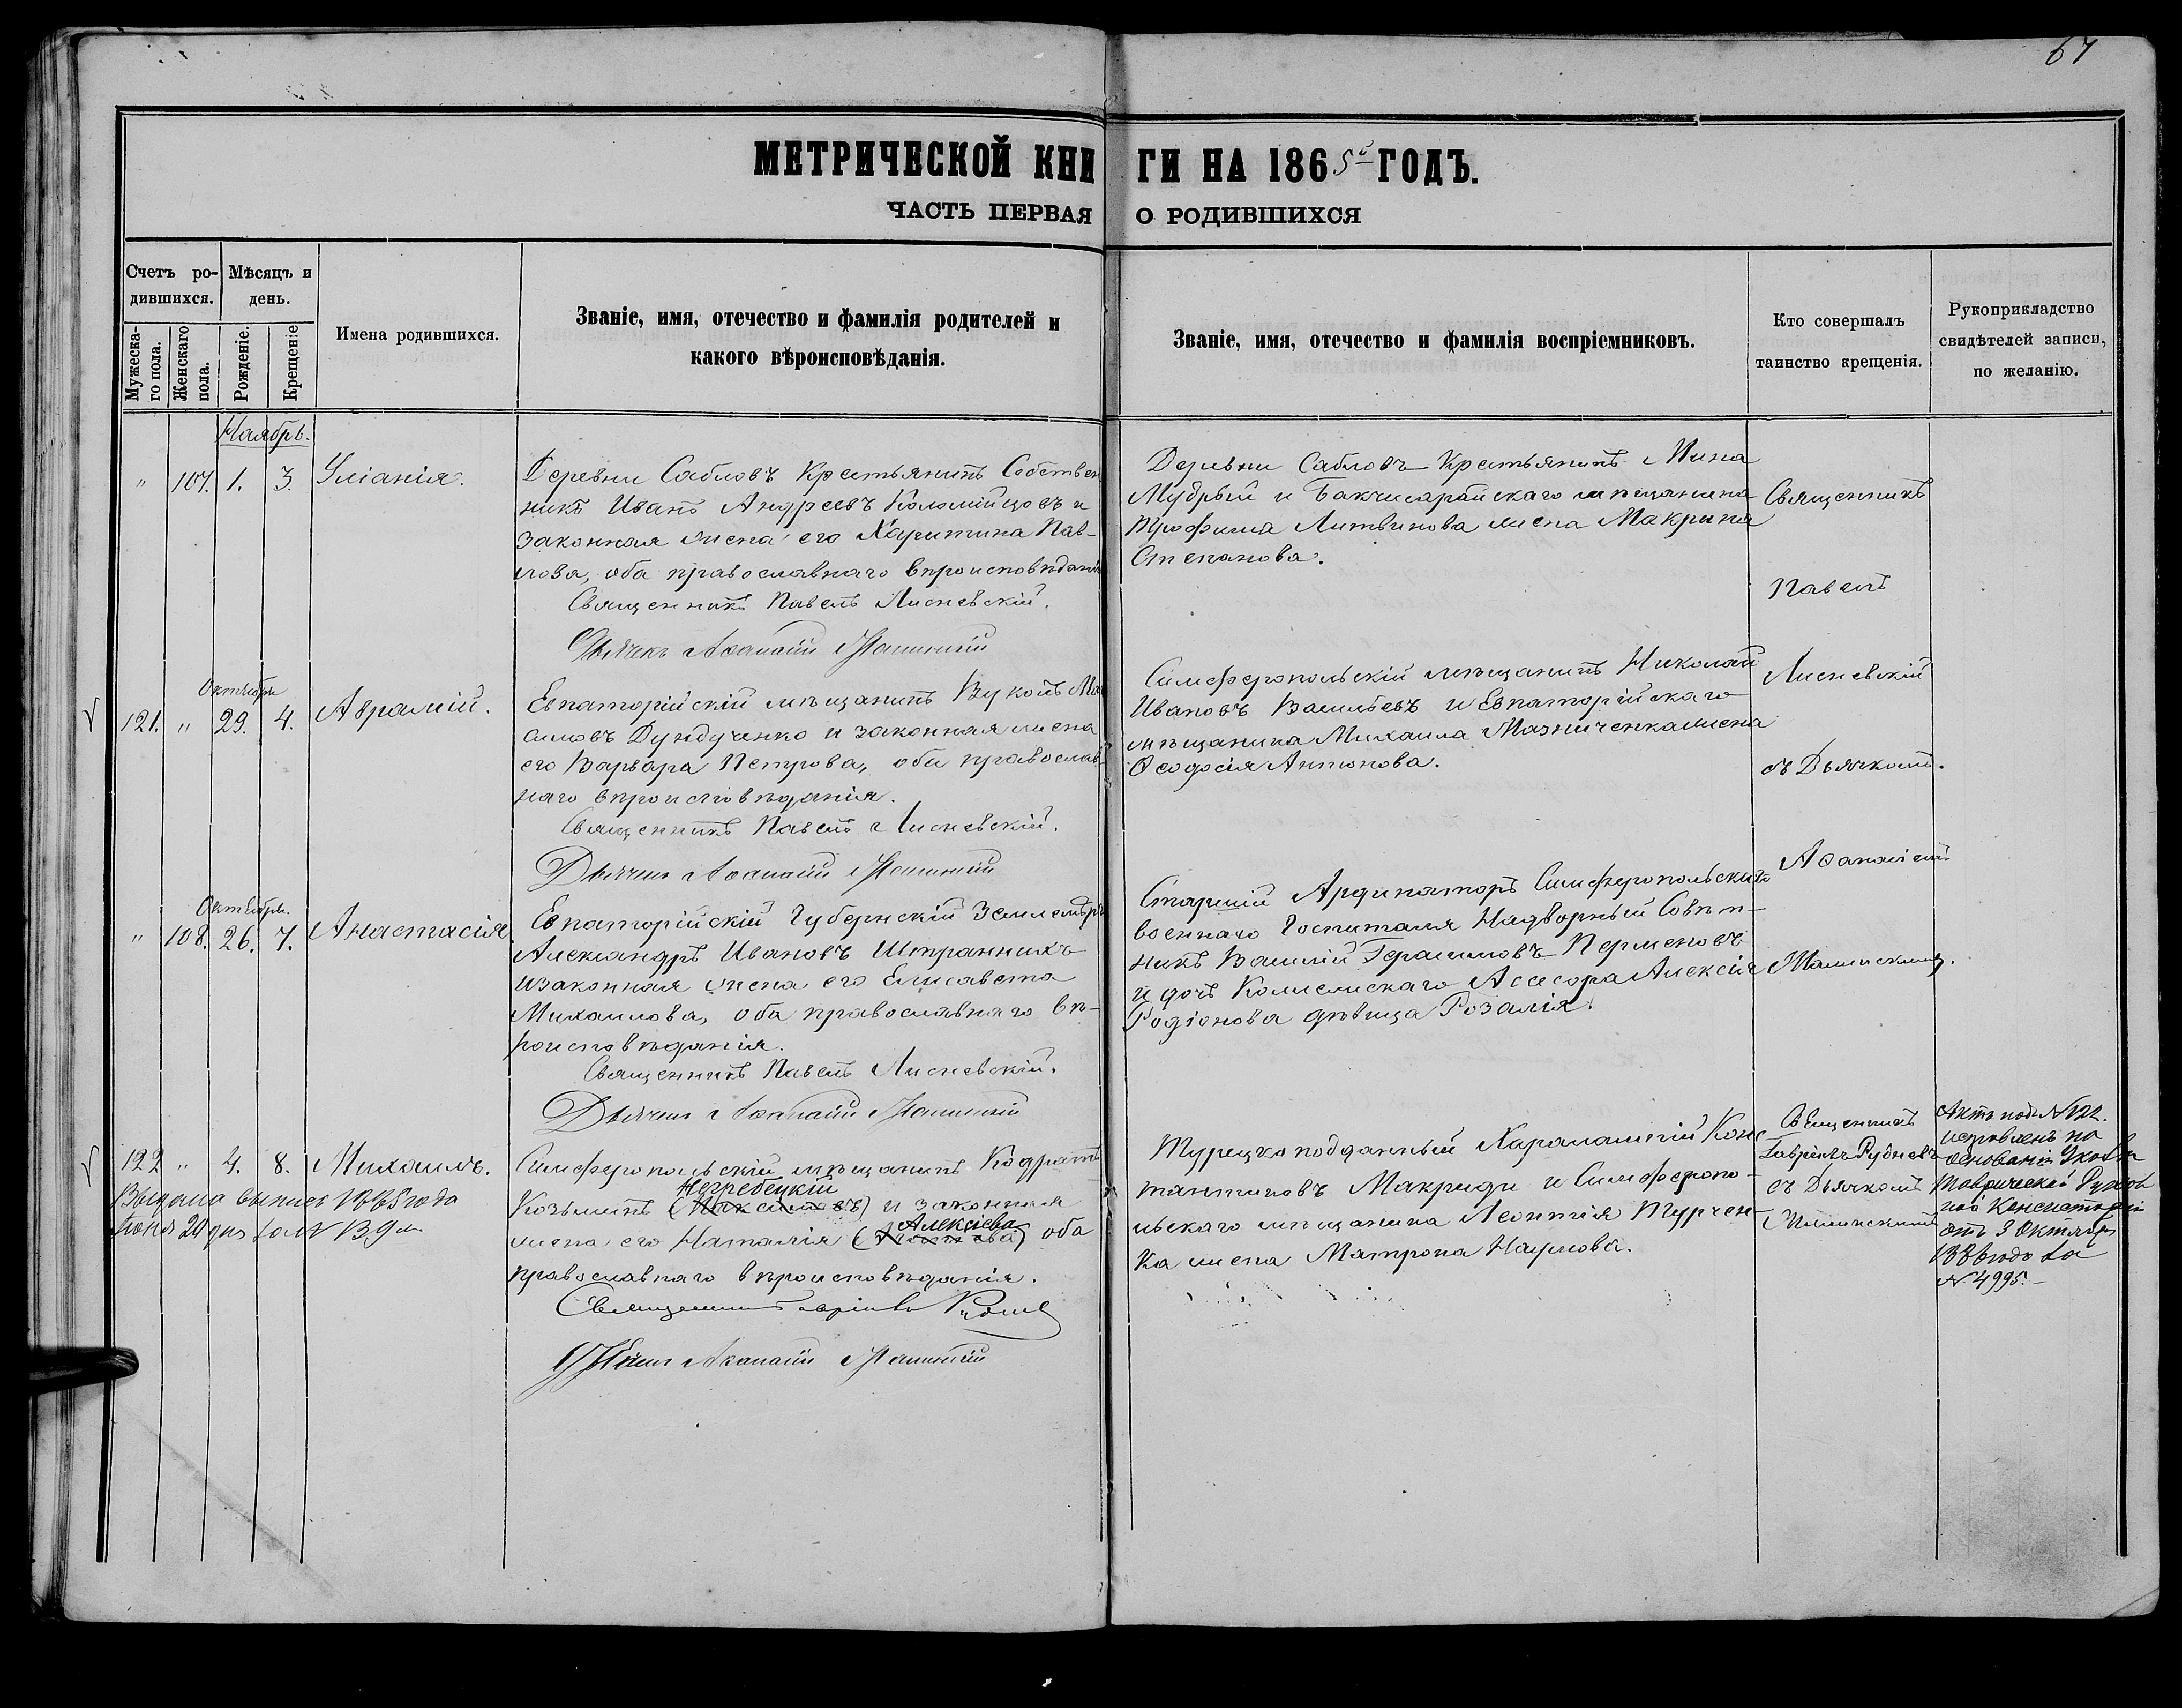 67
МЕТРИЧЕСКОЙ КНИГИ НА 1865й ГОДЪ.
ЧАСТЬ ПЕРВАЯ О РОДИВШИХСЯ
Счетъ ро-
дившихся.
Мужеска-
го пола.
Женскаго
пола.
Мѣсяцъ и
день.
Рожденіе.
Крещеніе
Имена родившихся.
Званіе, имя, отечество и фамилія родителей и
какого вѣроисповѣданія.
Званіе, имя, отечество и фамилія воспріемниковъ.
Кто совершалъ
таинство крещенія.
Рукоприкладство
свидѣтелей записи,
по желанію.
Ноябрь.
" 107. 1. 3. Уліанія.
Деревни Сабловъ Крестьянинъ Собствен
никъ Иванъ Андреевъ Коломійцовъ и
законная жена его Харитина Пав-
лова, оба православнаго вѣроисповѣданія
Священникъ Павелъ Лисневскій.
Дьячекъ Аѳанасій
Деревни Сабловъ Крестьянинъ Мина
Мудрый и Бакчисарайскаго мѣщанина
Трофима Литвинова жена Макрина
Степанова.
Священникъ
Павелъ
Лисневскій
съ Дьячкомъ.
Аѳанасіемъ
Октября
121. " 29. 4. Аврамій.
Евпаторійскій мѣщанинъ Вуколъ Ма
симовъ Дундученко и законная жена
его Варвара Петрова, оба православ-
наго вѣроисповѣданія.
Священникъ Павелъ Лисневскій.
Дьячекъ Аѳанасій
Симферопольскій мѣщанинъ Николай
Ивановъ Васильевъ и Евпаторійскаго
мѣщанина Михаила Мазниченка жена
Ѳеодосія Антонова.
Октября.
" 108. 26. 7. Анастасія
Евпаторійскій Губернскій Землемѣръ
Александръ Ивановъ Штранникъ
и законная жена его Елисавета
Михаилова, оба православнаго вѣ-
роисповѣданія.
Священникъ Павелъ Лисневскій.
Дьячекъ Аѳанасій
Старшій Ардинаторъ Симферопольскаго
военнаго Госпиталя Надворный Совѣт-
никъ Василій Герасимовъ Перменовъ
и дочь Колежскаго Асесора Алексія
Родіонова дѣвица Розалія.
122 " 4. 8. Михаилъ.
Выдана выпись 1885 года
Іюня 20 дня за № 139м
Симферопольскій мѣщанинъ Кодратъ
Негребецкій
Козьминъ (Максимовъ) и законная
Алексіева
жена его Наталія оба
православнаго вѣроисповѣданія.
Священникъ
Дьячекъ Аѳанасій
Турецкоподданный Харалампій Конс
тантиновъ Макриди и Симферопо-
льскаго мѣщанина Леонтія Турчен-
ка жена Матрона Наумова.
Священникъ
Гавріилъ Рудневъ
съ Дьячкомъ
Актъ подъ № 122.
исправленъ на
основаніи Указа
Таврической Духов
ной Консисторіи
отъ 3 Октября
года за
№ 4995.